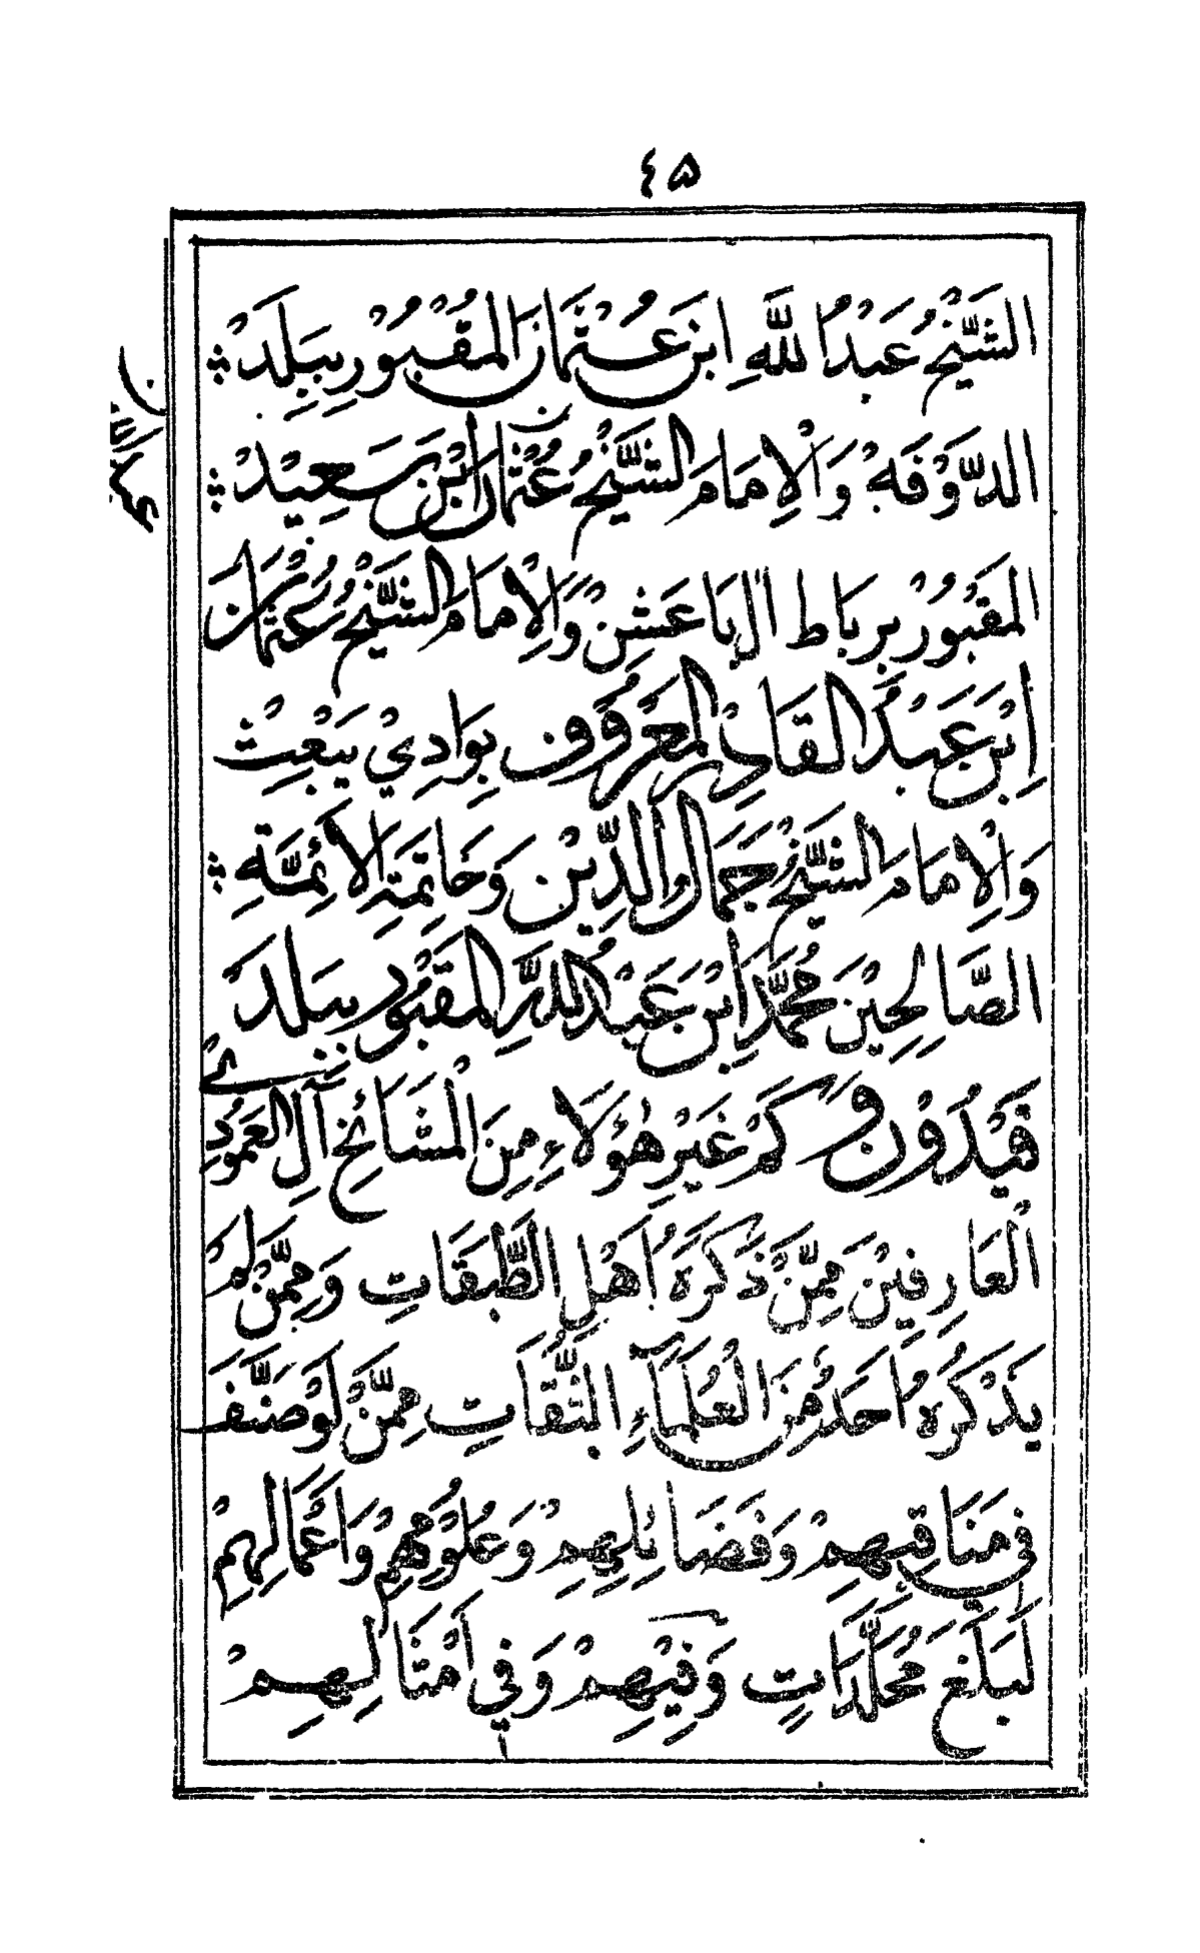 ٤٥
الشَّيْخُ عَبْدُ اللَّهِ ابْنَ عُثْمَانَ المَقْبُوْرِ بِبَلَدْ
الدَّوْفَهْ وَالْاِمَامَ الشَّيْخُ عُثْمَانَ ابْنَ سَعِيْدْ
المَقْبُوْرْ بِرِبَاطْ اَلْ بَاعَشِنْ وَالْاِمَامَ الشَّيْخُ عُثْمَانَ
اِبْنَ عَبْدُ القَادِرْ المَعْرُوْف بِوَادِيْ يَبْعِثْ
وَالْاِمَامَ الشَّيْخُ جَمَالُ الدِّيْن وَخَاتِمَةِ الْاَئِمَّةِ
الصَّالِحِيْنَ مُحَمَّدَ اِبْنَ عَبْدُ اللهِ المَقْبُوْر بِبَلَدْ
قَيْدُوْن وَكَمْ غَيْرِ هٰؤُلَاءِ مِنَ الْمَشَائِخْ آلِ العَمُوْدِيْ
الْعَارِفِيْنَ مِمَّنْ ذَكَرَهُ اَهْلِ الطَّبَقَاتِ وَمِمَّنْ لَمْ
يَذْكُرْهُ اَحَدٌ مِنَ الْعُلَمَآءِ الثِّقَاتِ مِمَّنْ لَوْ صَنَّفَ
فِي مَنَاقِبِهِمْ وَفَضَائِلِهِمْ وَعُلُوْمِهِمْ وَاَعْمَالِهِمْ
لَبَلَغَ مُجَلَّدَاتٍ وَفِيْهِمْ وَفِي اَمْثَالِهِمْ